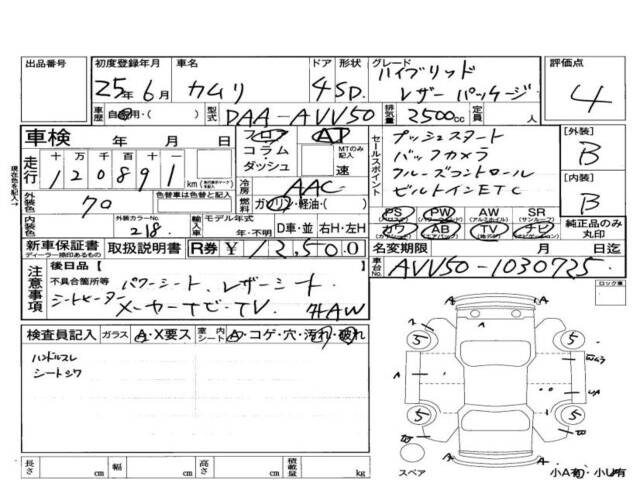 出品番号 初度登録年月 車名 ドア 形状 グレード 評価点
25年6月 カムリ 4 SD. ハイブリッド レザーパッケージ 4
車歴 自家用・( ) 型式 DAA-AVV50 排気量 2500cc 定員 人
車検 年 月 日 フロア AT プッシュスタート [外装]
現在色を記入→ 走行 十万千百十一 コラム・ダッシュ MTのみ記入 速 セールスポイント バックカメラ B
120891 km クルーズコントロール [内装]
冷房 AAC ビルトインETC B
外装色 70 色替車は色替と記入 燃料 ガソリン・軽油・( ) PS PW AW SR 純正品のみ丸印
内装色 外装カラーNo. 218. 輸入車 モデル年式 年・不明 D車・並 右H・左H カワ AB TV ナビ
新車保証書 取扱説明書 R券 ¥13,500 名変期限 月 日迄
ディーラー捺印あるもの
車台No. AVV50-1030725
注意事項 後日品【 】 ロック車
不具合箇所等 パワーシート、レザーシート
シートヒーター メーカーナビ・TV 外AW
検査員記入 ガラス A・X要ス 室内シート A・コゲ・穴・汚れ・破れ
ハンドルスレ
シートシワ
A
5 5
A A
A
5 5
長さ cm 幅 cm 高さ cm 積載量 kg スペア 小A有・小U有